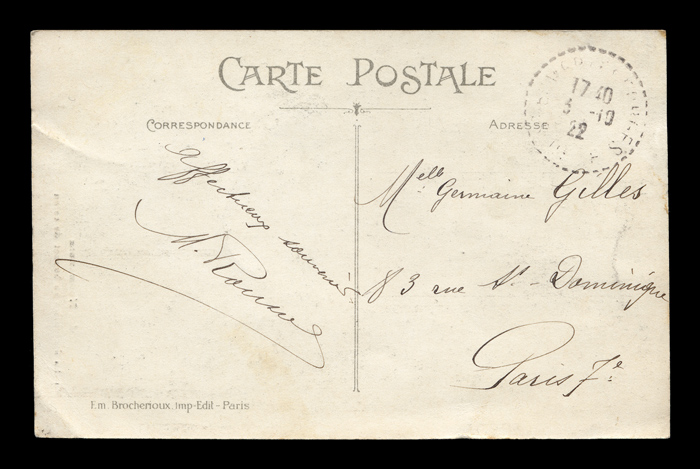 CARTE POSTALE
CORRESPONDANCE
ADRESSE
17 40
3 -10
22
Affectueux souvenir
M.
Melle Germaine Gilles
83 rue St-Dominique
Paris 7e
Em. Brocherioux, Imp-Edit - Paris